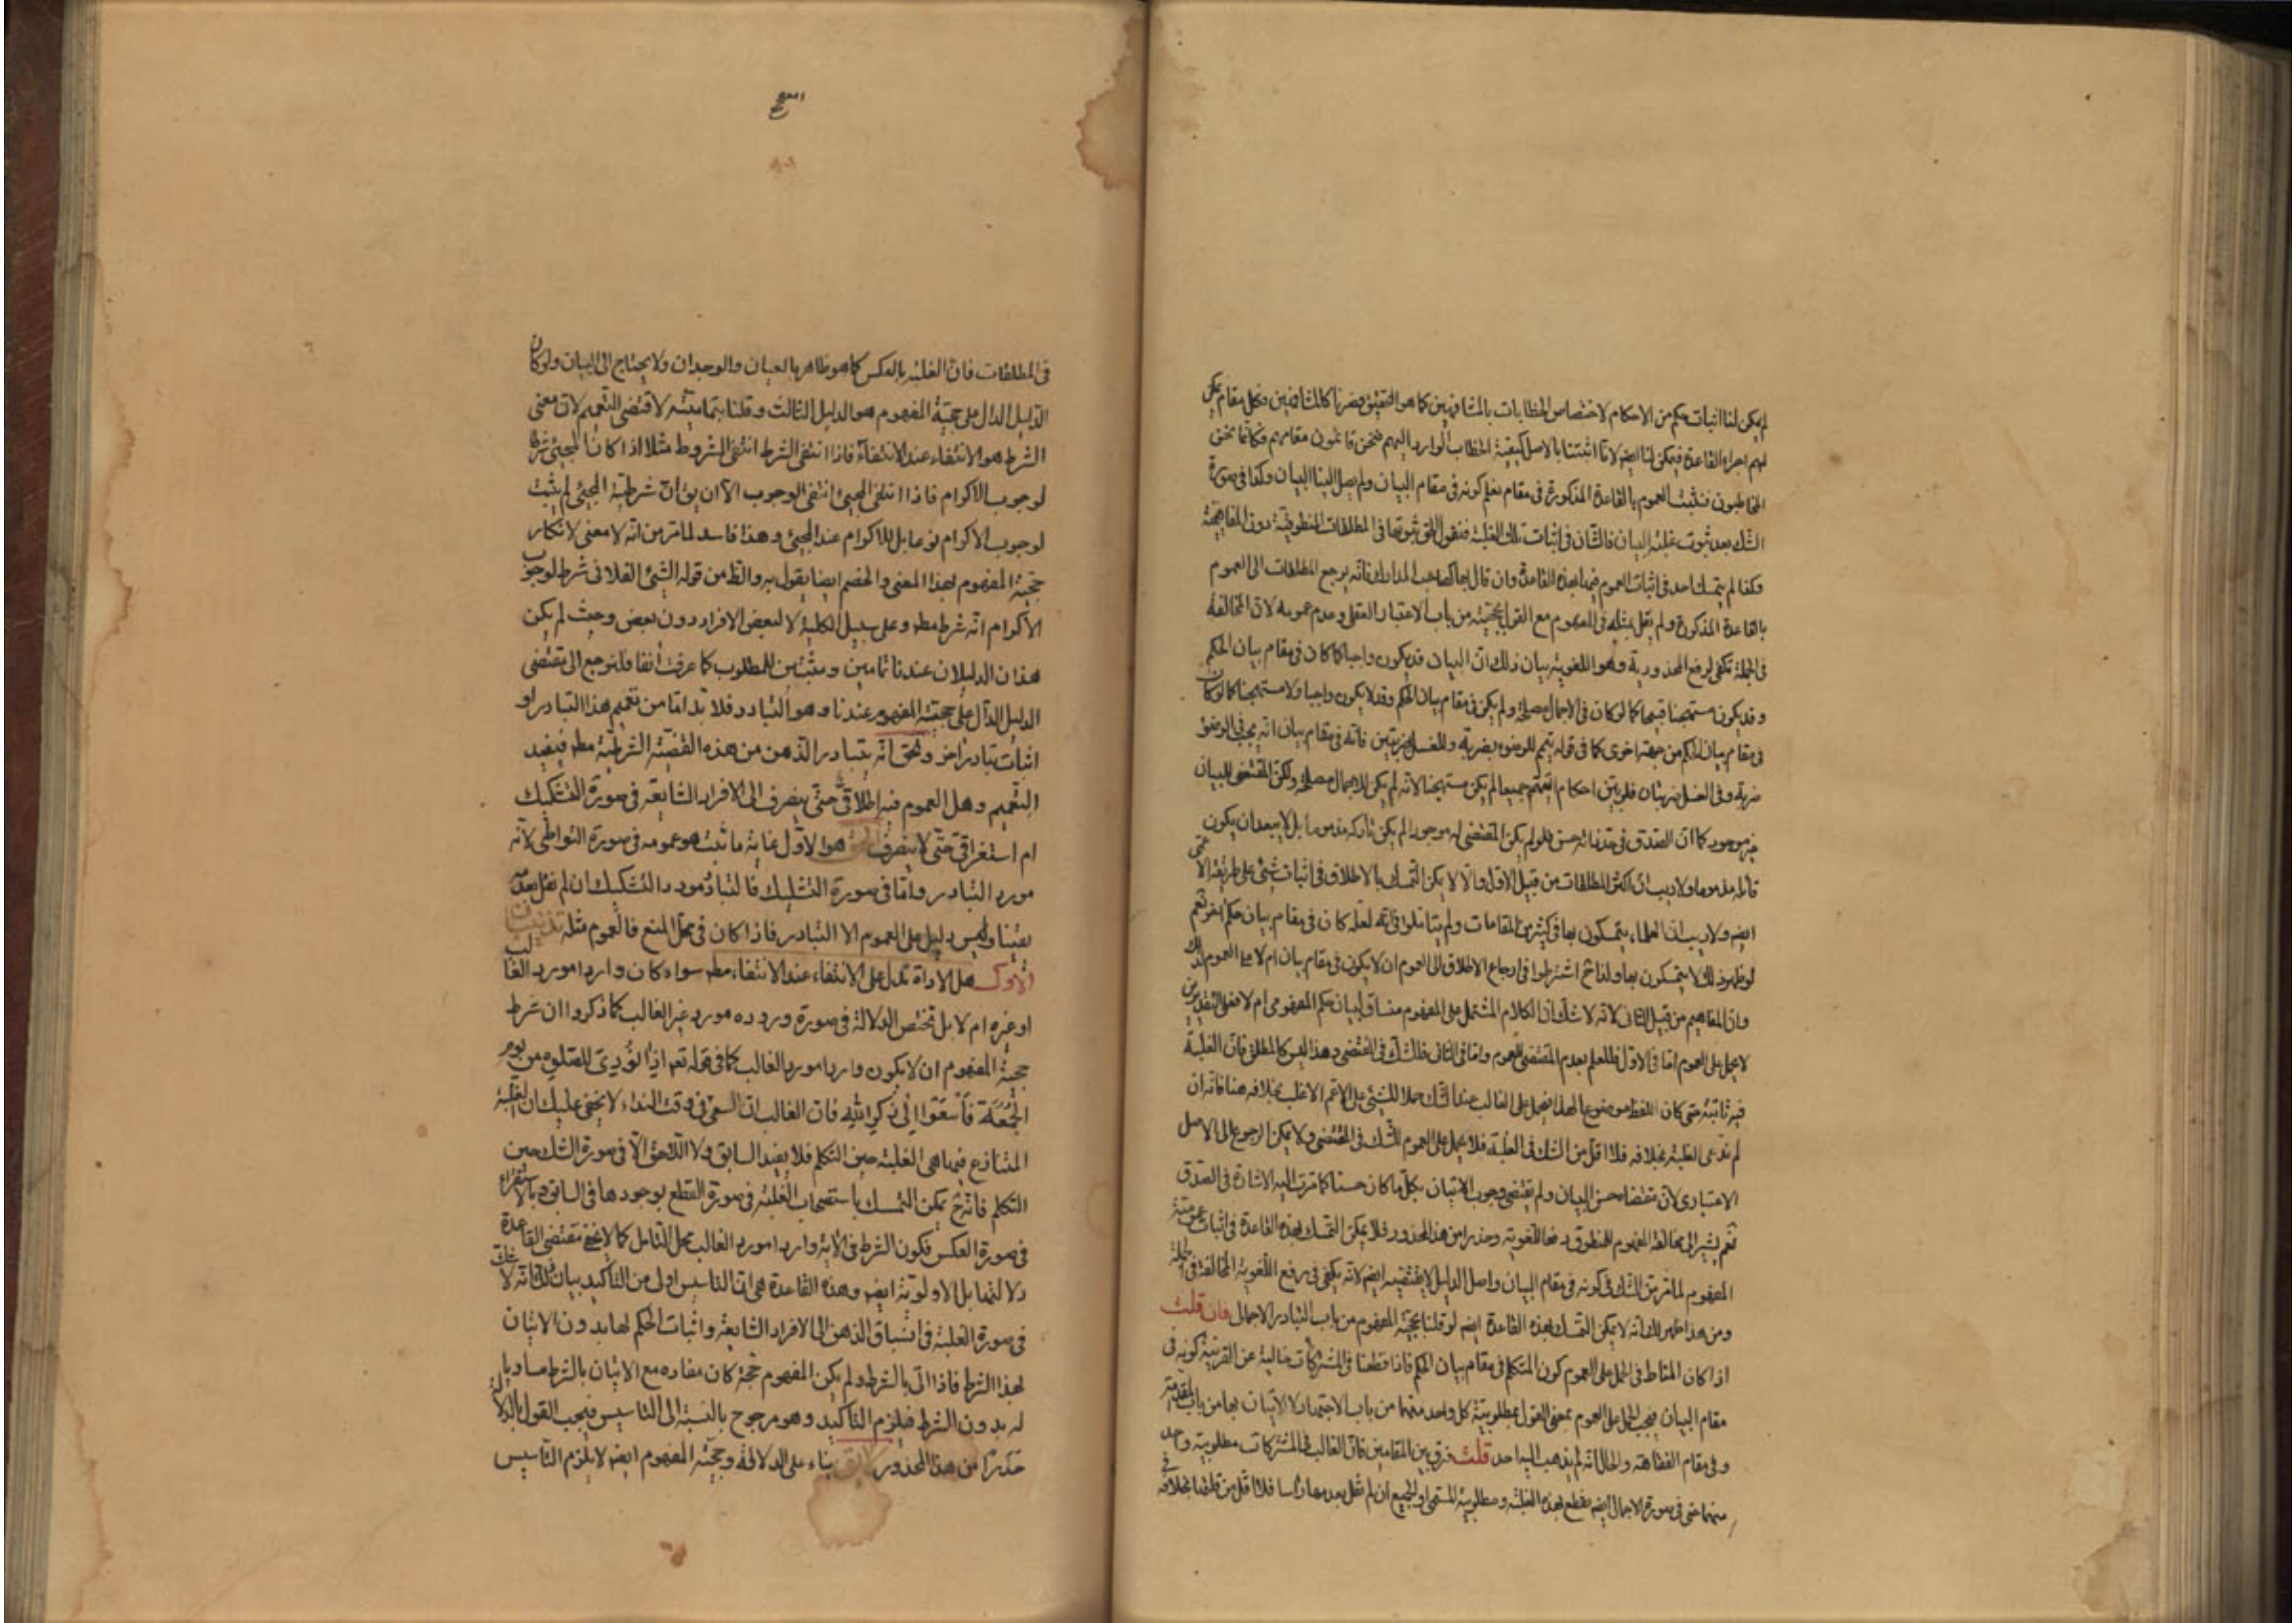 لم يمكن لنا اثبات حكم من الاحكام لاختصاص الخطابات بالمشافهين كما هو التحقيق فصرنا كالمشافهين فكل مقام يمكن
لهم اجراء القاعدة فيمكن لنا ايضا لانا اثبتنا بالاصل كيفية الخطاب الوارد اليهم فنحن قائمون مقامهم فكانما نحن
المخاطبون فنثبت العموم بالقاعدة المذكورة في مقام نعلم كونه في مقام البيان ولم يصل الينا البيان وكذا في صورة
الشك بعد ثبوت غلبة البيان فالشان في اثبات تلك الغلبة فنقول الحق ثبوتها في المطلقات المنطوقية دون المفاهيمية
فكذا لم يتمسك احد في اثبات العموم فيها بهذه القاعدة وان قال بها كصاحب المدارك فانه يرجع المطلقات الى العموم
بالقاعدة المذكورة ولم يقل بمثله في المفهوم مع القول بحجيته من باب الاعتبار العقلي وعدم عمومه لان المخالفة
في الجملة تكفي لرفع المحذورية وهو اللغوية بيان ذلك ان البيان قد يكون واجبا كما كان في مقام بيان الحكم
وقد يكون مستهجنا قبيحا كما لو كان في الاجمال مصلحة ولم يكن في مقام بيان الحكم وقد لا يكون واجبا ولا مستهجنا كما لو كان
في مقام بيان الحكم من جهة اخرى كما في قوله تيمم للوضوء بضربة وللغسل بضربتين فانه في مقام بيان انه يجب في الوضوء
ضربة وفي الغسل ضربتان فلو بين احكام التيمم جميعا لم يكن مستهجنا لانه لم يكن للاجمال مصلحة ولكن المقتضى للبيان
غير موجود كما ان التصدق في حد ذاته حسن فلو لم يكن المقتضى له موجودا لم يكن تاركه مذموما بل لا يبعد ان يكون
فاعله مذموما ولا ريب ان اكثر المطلقات من قبيل الاول والا لا يمكن التمسك بالاطلاق في اثبات شئ على طريقة الاعمى
ايضا ولا ريب ان العلماء يتمسكون بها في كثير من المقامات ولم يتاملوا في انه لعله كان في مقام بيان حكم اخر نعم
لو ظهر ذلك لا يتمسكون بها ولذا تريهم اشترطوا في ارجاع الاطلاق الى العموم ان لا يكون في مقام بيان ام لا مع العموم لذلك
وان المفاهيم من قبيل الثاني لانه لا شك ان الكلام المشتمل على المفهوم منساق لبيان حكم المفهومي ام لا فعلى التقديرين
لا يحمل على العموم اما في الاول فللعلم بعدم المقتضى للعموم واما في الثاني فللشك في المقتضى وهذا ليس كالمطلق فان الغلبة
فيه ثابتة حتى كان اللفظ موضوعا لهذا فيحمل على الغالب عند الشك حملا للشئ على الاعم الاغلب بخلافه هنا فانه ان
لم ندعى الغلبة بخلافه فلا اقل من الشك في الغلبة فلا يحمل على العموم للشك في المقتضى ولا يمكن الرجوع على الاصل
الاعتبارى لان مقتضاه حسن البيان ولم يقتضى وجوب الاتيان بكل ما كان حسنا كما مرت اليه الاشارة في التصدق
نعم يشير الى مخالفة المفهوم للمنطوق دفعا للغوية وحذرا من هذا المحذور فلا يمكن التمسك بهذه القاعدة في اثبات عمومية
المفهوم لما مر من الشك في كونه في مقام البيان واصل الدليل لا يقتضيه ايضا لانه يكفي في رفع اللغوية المخالفة في الجملة
ومن هذا ظهر لك انه لا يمكن التمسك بهذه القاعدة ايضا لو قلنا بحجية المفهوم من باب التبادر الاجمالى فان قلت
اذا كان المناط في الحمل على العموم كون المتكلم في مقام بيان الحكم فاذا قطعنا في المشتركات خالية عن القرينة كونه في
مقام البيان فيجب الحمل على العموم بمعنى القول بمطلوبية كل واحد منهما من باب الاجتهاد لا الاتيان بهما من باب المقدمة
وفي مقام الفقاهة والحال انه لم يذهب اليه احد قلت فرق بين المقامين فان الغالب في المشتركات مطلوبية واحد
منهما حتى في صورة الاجمال ايضا نقطع بهذه الغلبة ومطلوبية المسمى او الجميع ان لم نقل بعدمها راسا فلا اقل من قلتها بخلافه في
في المطلقات فان الغلبة بالعكس كما هو ظاهر بالعيان والوجدان ولا يحتاج الى البيان ولو كان
الدليل الدال على حجية المفهوم هو الدليل الثالث وقلنا بتماميته لاقتضى التعميم لان معنى
الشرط هو الانتفاء عند الانتفاء فاذا انتفى الشرط انتفى المشروط مثلا اذا كان المجيئ شرطا
لوجوب الاكرام فاذا انتفى المجيئ انتفى الوجوب الا ان يق ان شرطية المجيئ لم يثبت
لوجوب الاكرام نوعا بل للاكرام عند المجيئ وهذا فاسد لما مر من انه لا معنى لانكار
حجية المفهوم بهذا المعنى والخصم ايضا يقول به والظ من قوله الشئ الفلانى شرط لوجوب
الاكرام انه شرط مط وعلى سبيل الكلية لا لبعض الافراد دون بعض وحيث لم يكن
هذان الدليلان عندنا تامين ومثبتين للمطلوب كما عرفت آنفا فلنرجع الى مقتضى
الدليل الدال على حجية المفهوم عندنا وهو التبادر فلا بد اما من تعميم هذا التبادر او
اثبات تبادر اخر والحق انه يتبادر الذهن من هذه القضية الشرطية مط فيفيد
التعميم وهل العموم فيه اطلاقى حتى ينصرف الى الافراد الشايعة في صورة التشكيك
ام استغراقى حتى لا ينصرف الحق هو الاول غاية ما ثبت هو عمومه في صورة التواطى لانه
مورد التبادر واما في صورة التشكيك فالتبادر مورد التشكيك ان لم نقل بعدمه
يقينا وليس دليل على العموم الا التبادر فاذا كان في محل المنع فالعموم مثله تذنيبات
الاول هل الاداة تدل على الانتفاء عند الانتفاء مط سواء كان واردا مورد الغالب
او غيره ام لا بل تختص الدلالة في صورة وروده مورد غير الغالب كما ذكروا ان شرط
حجية المفهوم ان لا يكون واردا مورد الغالب كما في قوله تعه اذا نُودِىَ للصّلوة من يوم
الجُمُعَة فَاسْعَوْا اِلى ذِكرِ اللّه فان الغالب ان السعى في وقت النداء لا يخفى عليك ان الغلبة
المتنازع فيها هى الغلبة حين التكلم فلا يفيد السابق ولا اللاحق الا في صورة الشك حين
التكلم فانه ح يمكن التمسك باستصحاب الغلبة في صورة القطع بوجودها في السابق وبالاستقراء
في صورة العكس فكون الشرط في الاية واردا مورد الغالب محل التامل كما لا يخفى مقتضى القاعدة
دلالتها بل الاولوية ايضا وهذه القاعدة هى ان التاسيس اولى من التاكيد بيان ذلك انه لا شك
في صورة الغلبة في انسباق الذهن الى الافراد الشايعة واثبات الحكم لها بدون الاتيان
لهذا الشرط فاذا اتى بالشرط ولم يكن المفهوم حجة كان مفاده مع الاتيان بالشرط مساويا
له بدون الشرط فيلزم التاكيد وهو مرجوح بالنسبة الى التاسيس فيجب القول بالدلالة
حذرا من هذا المحذور بناء على الدلالة وحجية المفهوم ايضا لا يلزم التاسيس